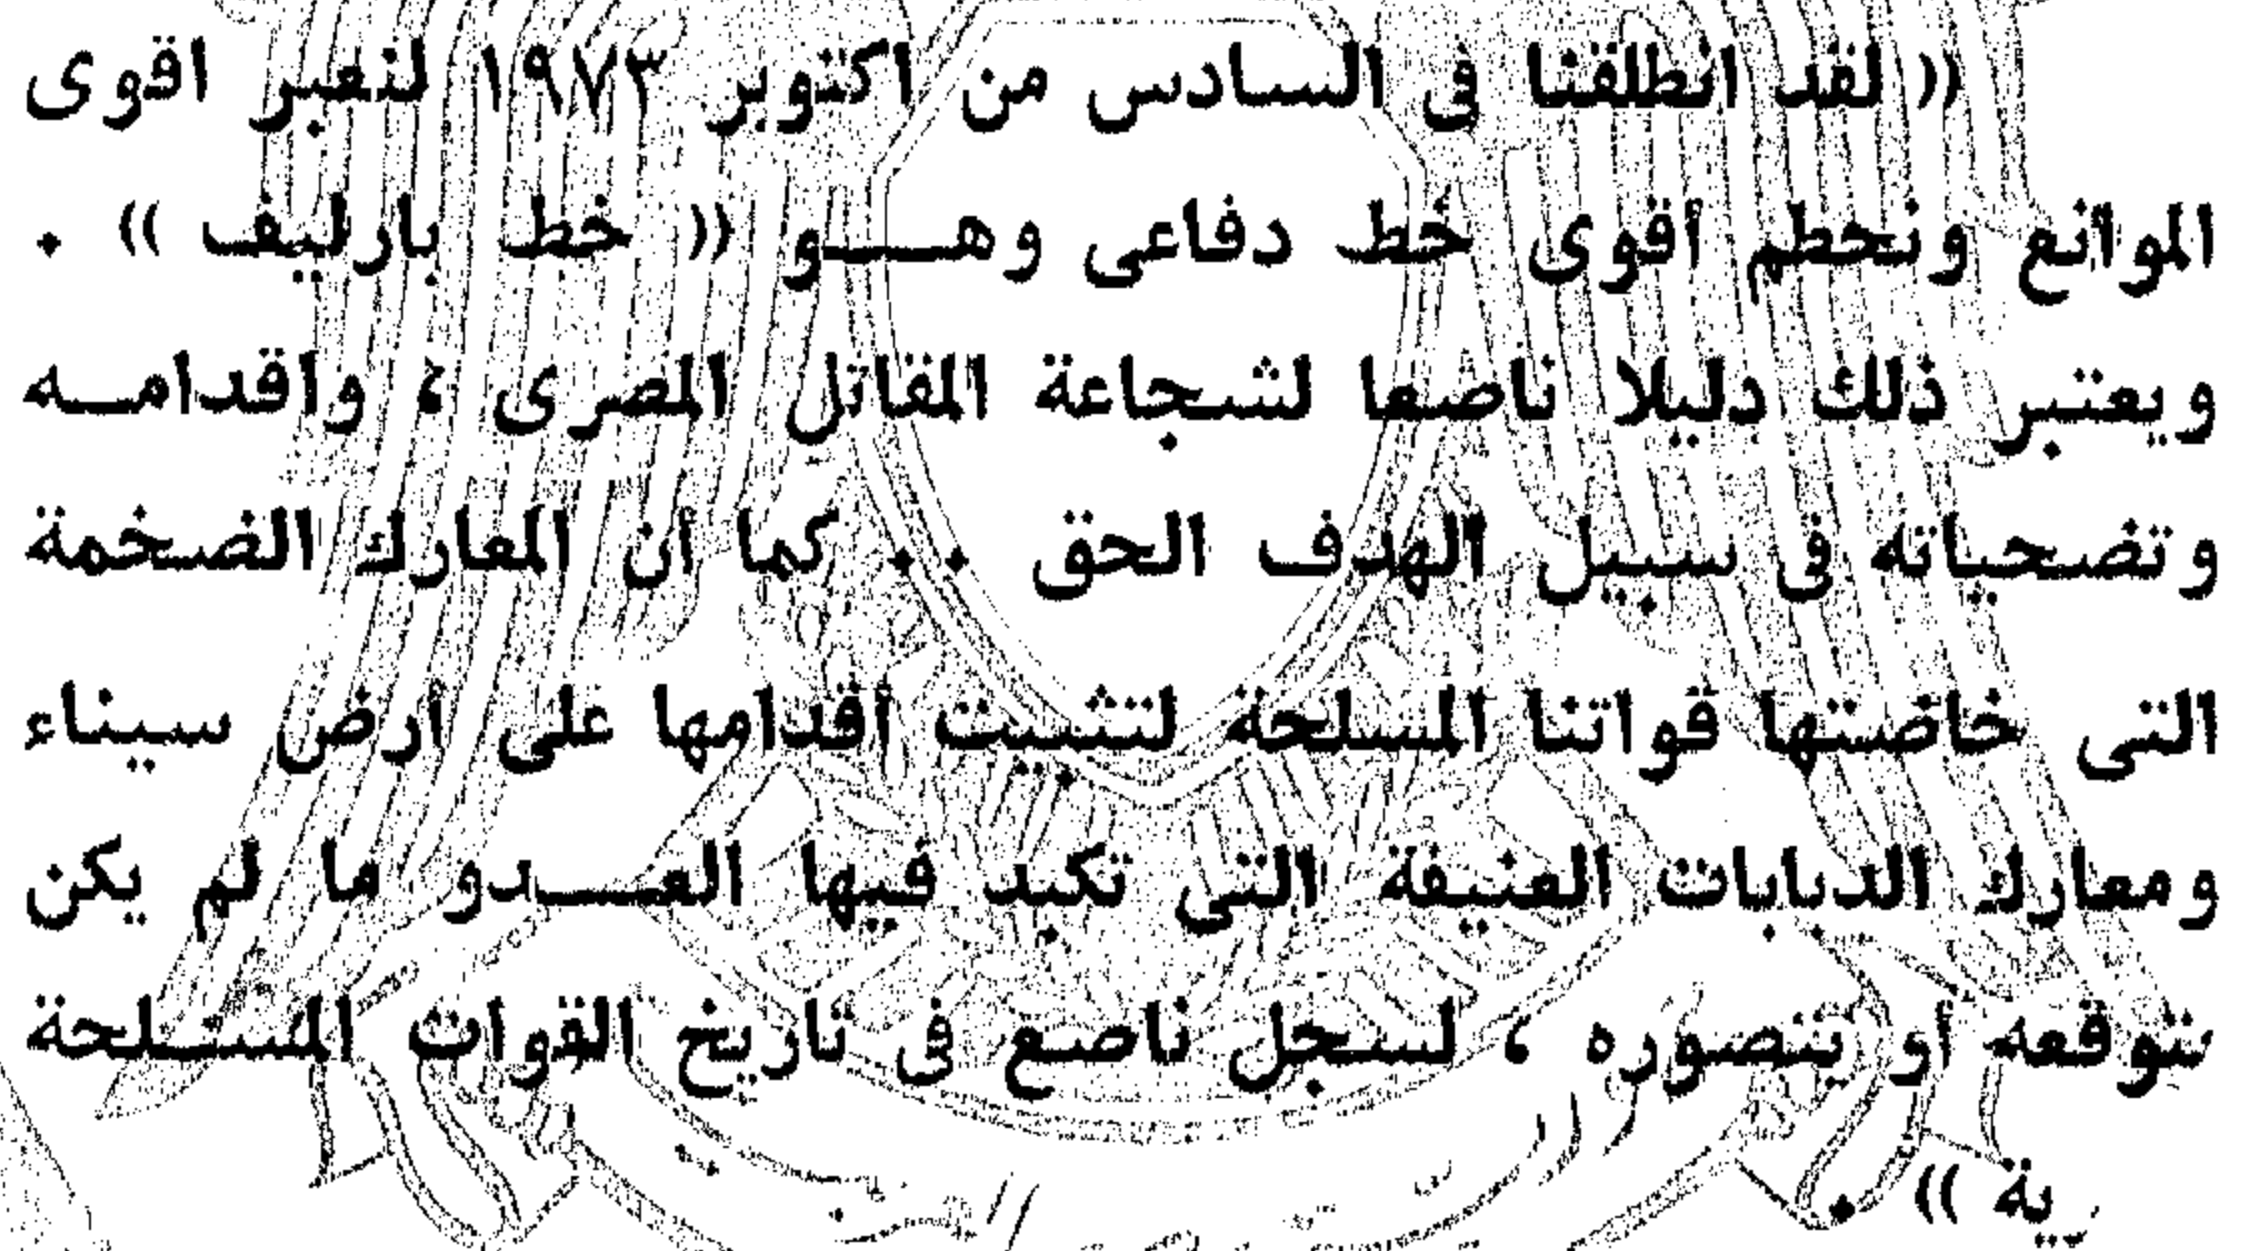 (( لقد انطلقنا فى السادس من اكتوبر ١٩٧٣ لنعبر اقوى
الموانع ونحطم أقوى خط دفاعى وهـــو (( خط بارليف )) .
ويعتبر ذلك دليلا ناصعا لشجاعة المقاتل المصرى ، واقدامــه
وتضحياته فى سبيل الهدف الحق . . كما أن المعارك الضخمة
التى خاضتها قواتنا المسلحة لتثبيت أقدامها على أرض سيناء
ومعارك الدبابات العنيفة التى تكبد فيها العـــدو ما لم يكن
يتوقعه أو يتصوره ، لسجل ناصع فى تاريخ القوات المسلحة
)) .